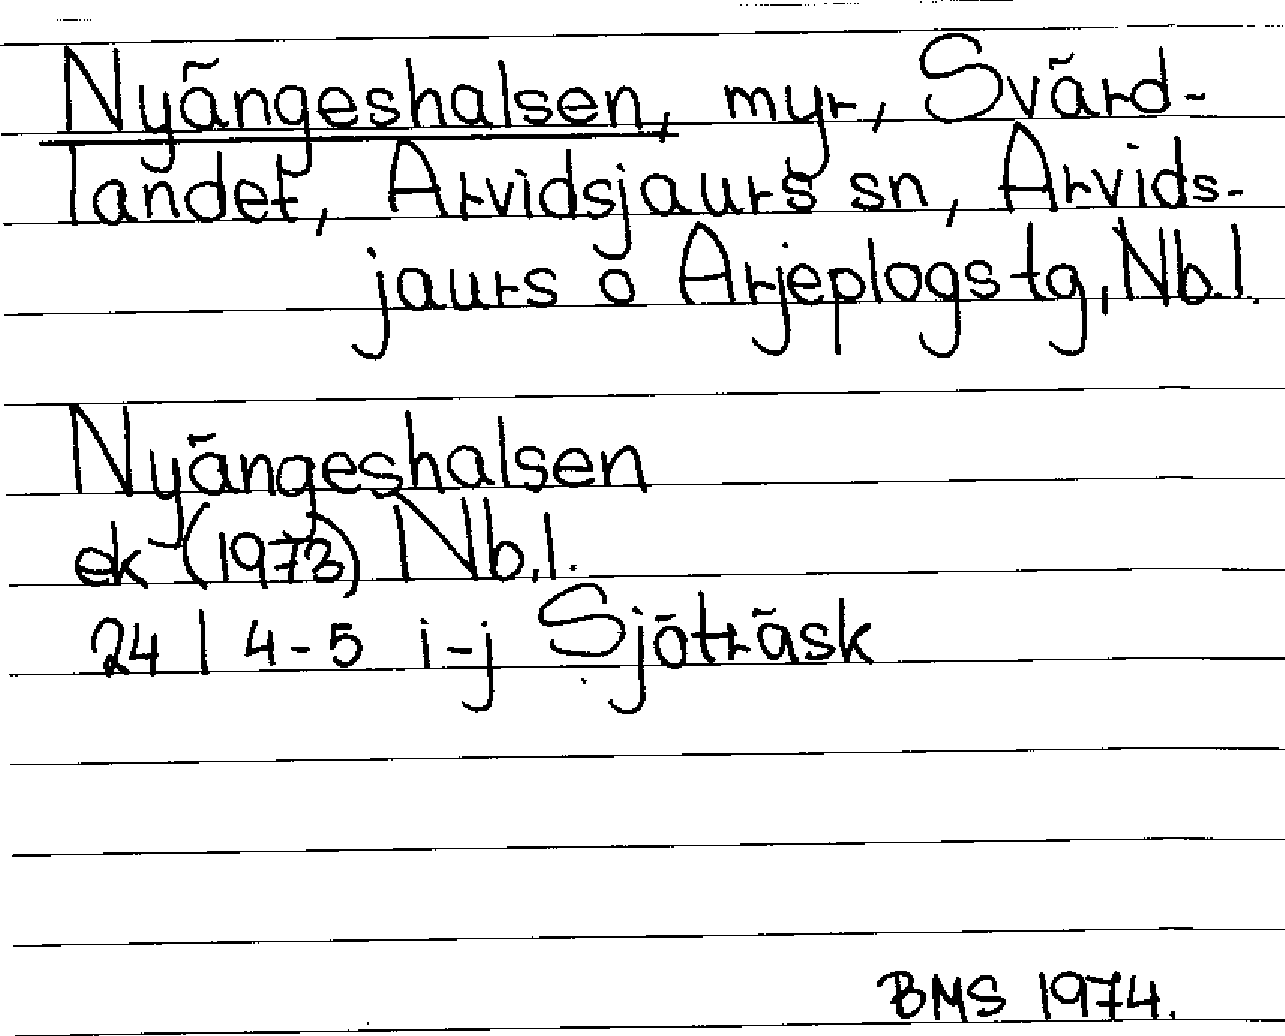 Nyängeshalsen, myr, Svärd-
landet, Arvidsjaurs sn, Arvids-
jaurs o Arjeplogs tg, Nb.l.
Nyängeshalsen
ek (1973) Nb.l.
24 I 4-5 i-j Sjöträsk
BMS 1974.